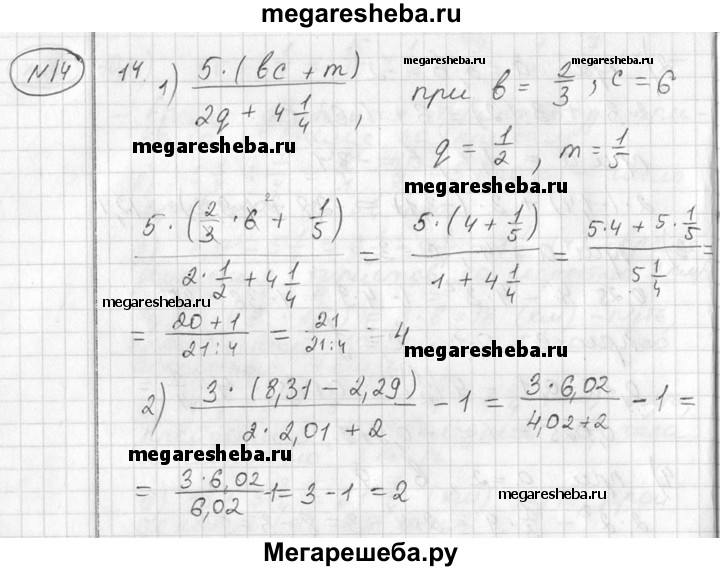 megaresheba.ru
N14
14. 1) 5·(bc + m) / 2q + 4 1/4 , при b = 2/3, c = 6
megaresheba.ru
q = 1/2, m = 1/5
megaresheba.ru
megaresheba.ru
5·(2/3 · 6² + 1/5) / 2·1/2 + 4 1/4 = 5·(4 + 1/5) / 1 + 4 1/4 = 5·4 + 5·1/5 / 5 1/4 =
megaresheba.ru
= 20 + 1 / 21:4 = 21 / 21:4 = 4
megaresheba.ru
2) 3·(8,31 – 2,29) / 2·2,01 + 2 – 1 = 3·6,02 / 4,02+2 – 1 =
megaresheba.ru
= 3·6,02 / 6,02 -1 = 3 – 1 = 2
megaresheba.ru
Мегарешеба.ру